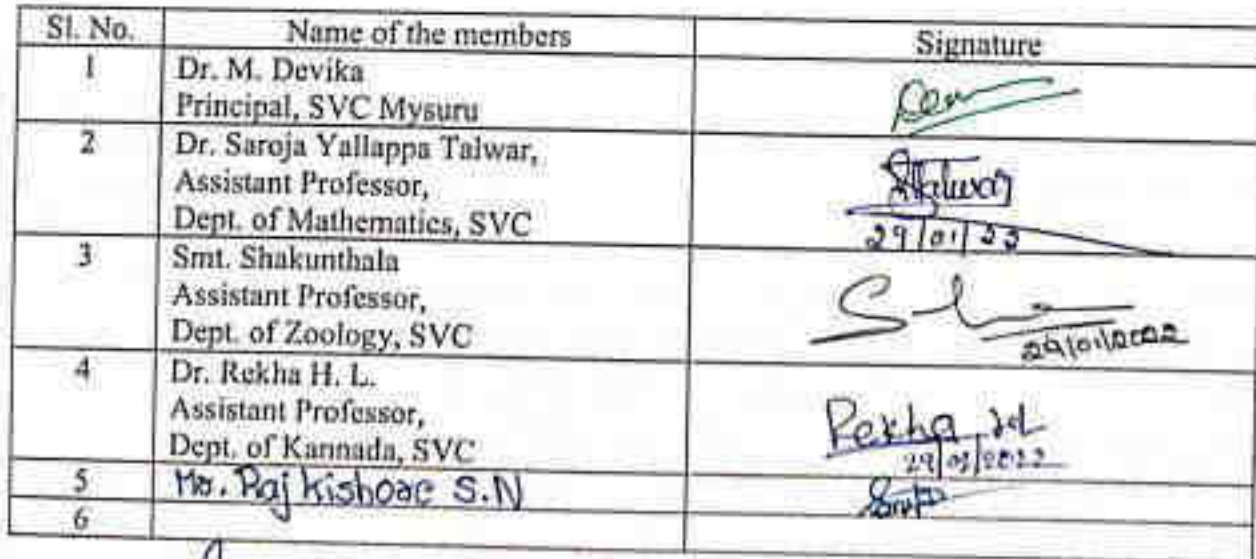 Sl. No. Name of the members Signature
1 Dr. M. Devika
Principal, SVC Mysuru
2 Dr. Saroja Yallappa Talwar,
Assistant Professor,
Dept. of Mathematics, SVC
SYTalwar
29/01/22
3 Smt. Shakunthala
Assistant Professor,
Dept. of Zoology, SVC
29/01/2022
4 Dr. Rekha H. L.
Assistant Professor,
Dept. of Kannada, SVC
Rekha H.L
29/01/2022
5 Mr. Raj kishore S.N
6